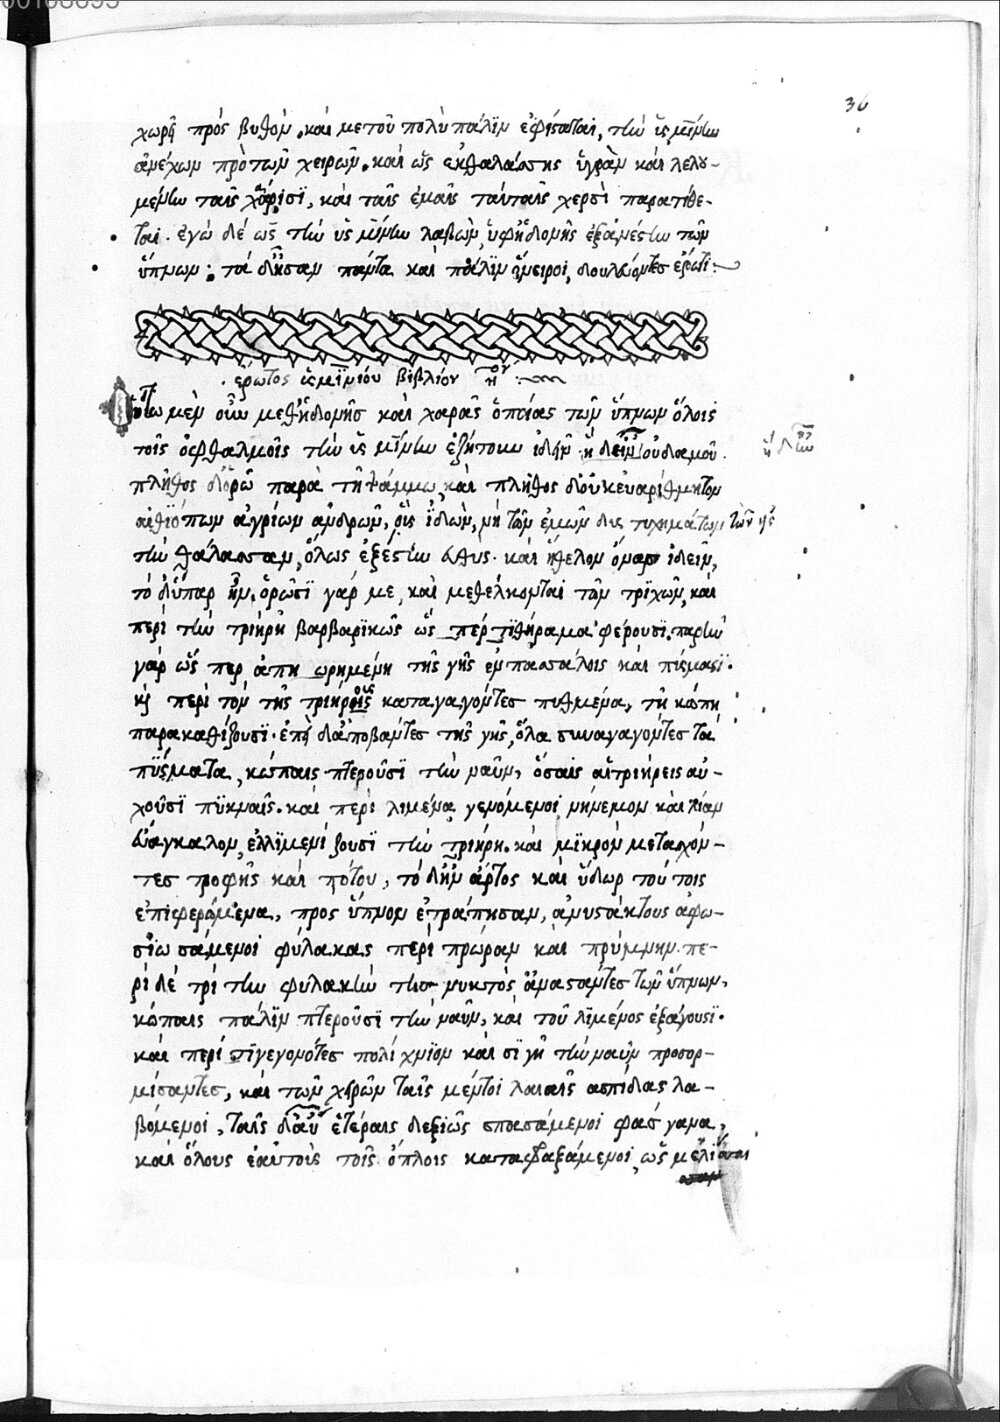 00108695
36
χωρεῖ πρὸς βυθόν. καὶ μετ' οὐ πολὺ πάλιν ἐφίσταται, τὴν ὑσμίνην
ἀνέχων πρὸ τῶν χειρῶν. καὶ ὡς ἐκ θαλάσσης ὑγρὰν καὶ λελυ-
μένην ταῖς χάρισι, καὶ ταῖς ἐμαῖς ταύταις χερσὶ παρατίθε-
ται. ἐγὼ δὲ ὡς τὴν ὑσμίνην λαβὼν, ὑφ' ἡδονῆς ἐξανέστην τῶν
ὕπνων: τὰ δ' ἦσαν πάντα καὶ πάλιν ὄνειροι, δουλεύοντες ἔρωτι:
ἔρωτος ὑσμινίου βιβλίον η:
Οὕτω μὲν οὖν μεθ' ἡδονῆς καὶ χαρᾶς ἀποστὰς τῶν ὕπνων ὅλοις
τοῖς ὀφθαλμοῖς τὴν ὑσμίνην ἐζήτουν ἰδεῖν ἡ δ' ἦν οὐδαμοῦ.
πλῆθος δ' ὁρῶ παρὰ τῇ ψάμμῳ, καὶ πλῆθος δ' οὐκ εὐαρίθμητον
αἰθιόπων ἀγρίων ἀνδρῶν, οὓς ἰδὼν, μὴ τῶν ἐμῶν δυστυχημάτων τῶν εἰς
τὴν θάλασσαν, ὅλως ἐξέστην εὐθύς. καὶ ἤθελον ὄναρ ἰδεῖν,
τὸ δ' ὕπαρ ἦν. ὁρῶσι γάρ με, καὶ μεθέλκονται τῶν τριχῶν, καὶ
περὶ τὴν τριήρη βαρβαρικῶς ὥσπερ τι θήραμα φέρουσι. παρῆν
γὰρ ὥσπερ ἀπῃωρημένη τῆς γῆς ἐν πασσάλοις καὶ πείσμασι.
καὶ περὶ τὸν τῆς τριήρους καταγαγόντες πυθμένα, τῇ κώπῃ
παρακαθίζουσι. ἐπεὶ δ' ἀποβάντες τῆς γῆς, ὅλα συναγαγόντες τὰ
πείσματα, κώπαις πτεροῦσι τὴν ναῦν, ὅσαις αἱ τριήρεις αὐ-
χοῦσι πυκναῖς. καὶ περὶ λιμένα γενόμενοι νήνεμον καὶ λίαν
εὐάγκαλον, ἐλλιμενίζουσι τὴν τριήρη. καὶ μικρὸν μετασχόν-
τες τροφῆς καὶ πότου, τὸ δ' ἦν ἄρτος καὶ ὕδωρ τούτοις
ἐπιφερόμενα, πρὸς ὕπνον ἐτράπησαν, ἀνυστάκτους ἀφω-
σιωσάμενοι φύλακας περὶ πρώραν καὶ πρύμνην. πε-
ρὶ δὲ τρίτην φυλακὴν τῆς νυκτὸς ἀναστάντες τῶν ὕπνων,
κώπαις πάλιν πτεροῦσι τὴν ναῦν, καὶ τοῦ λιμένος ἐξάγουσι.
καὶ περί τι γεγονότες πολίχνιον καὶ σιγῇ τὴν ναῦν προσορ-
μίσαντες, καὶ τῶν χειρῶν ταῖς μέντοι λαιαῖς ἀσπίδας λα-
βόμενοι, ταῖς δ' αὖ ἑτέραις δεξιῶς σπασάμενοι φάσγανα,
καὶ ὅλους ἑαυτοὺς τοῖς ὅπλοις καταφραξάμενοι, ὡς μέλισσαι